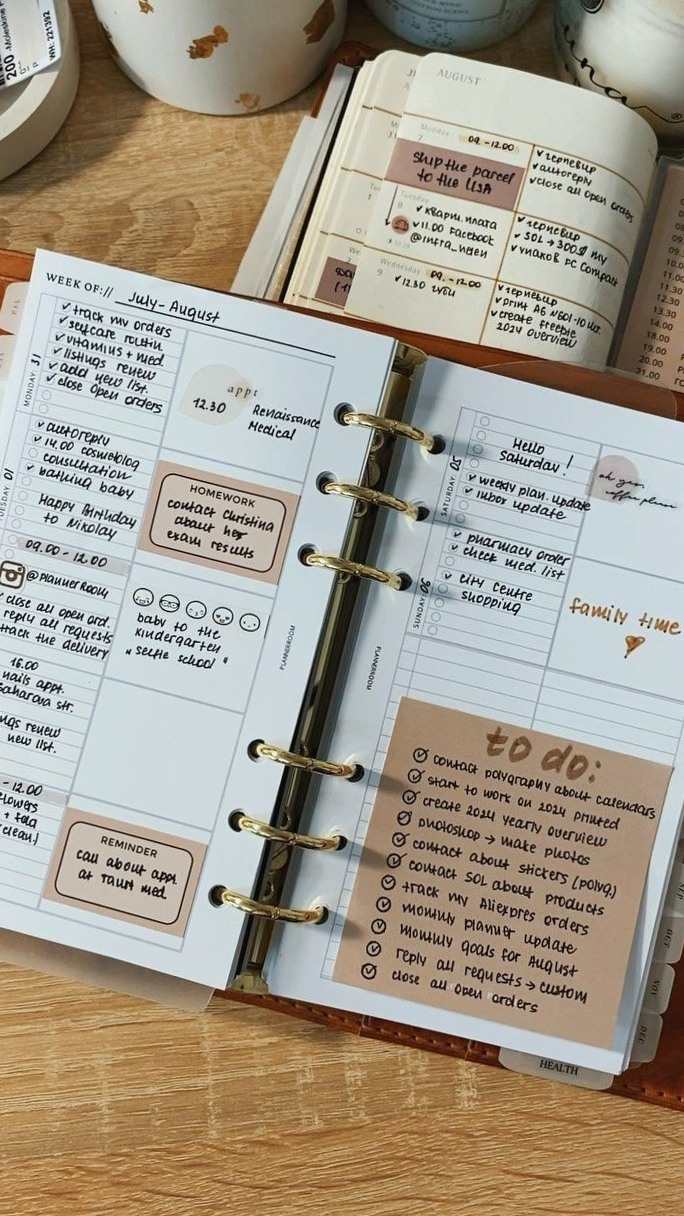 200
Moleskine
WH: 221392
una®
AUGUST
Monday
7
09.-12.00
Ship the parcel
to the USA
✓чернєвир
✓autoreply
✓close all open orders
Tuesday
8
✓кварт.плата
✓11.00 Facebook
@infra_helen
✓чернєвир
✓SOL → 300$ my
Wednesday
9
09.-12.00
✓12.30 зуби
✓чернєвир
✓create freebie
2024 overview
09.
10.0
11.00
11.30
12.30
13.30
14.00
18.00
19.00
20.00
21.00
WEEK OF://
July-August
MONDAY 31
✓track my orders
✓selfcare routin
✓vitamins + med
✓listings review
✓add new list.
✓close open orders
appt
12.30 Renaissance
Medical
TUESDAY 01
✓autoreply
✓14.00 cosmetolog
consultation
✓bathing baby
Happy Birthday
to Nikolay
HOMEWORK
contact Christina
about her
exam results
09.00-12.00
@plannerRoom
close all open ord.
reply all requests
track the delivery
16.00
nails appt.
saharova str.
baby to the
kindergarten
"selfie school"
ngs review
new list.
-12.00
flowers
clean)
REMINDER
call about appt.
at Taurt med.
PLANNERROOM
PLANNERROOM
SATURDAY 05
Hello
Saturday!
✓weekly plan. update
✓inbox update
✓pharmacy order
✓check med. list
oh yes,
coffee please
SUNDAY 06
✓city centre
shopping
family time
to do:
contact polygraphy about calendars
start to work on 2024 printed
create 2024 yearly overview
photoshop → make photos
contact about stickers (polyg.)
contact SOL about products
track my Aliexpres orders
monthly planner update
monthly goals for August
reply all requests → custom
close all open orders
OCT
NOV
DEC
HEALTH